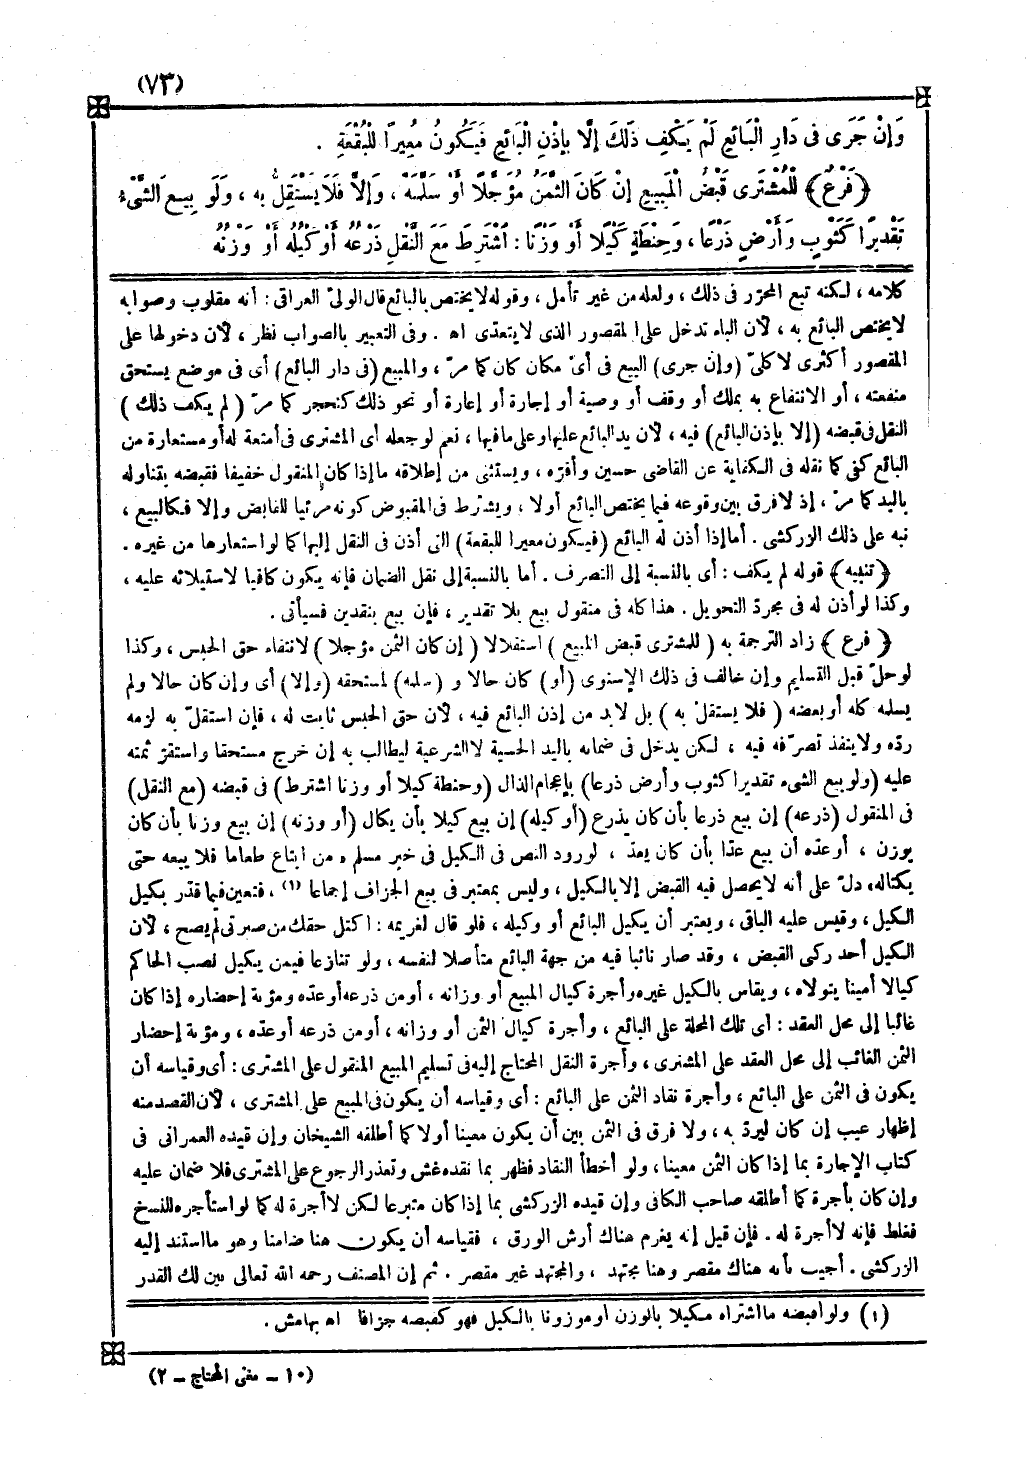 (٧٣)
وَإِنْ جَرَى فِى دَارِ الْبَائِعِ لَمْ يَكْفِ ذَلِكَ إِلَّا بِإِذْنِ الْبَائِعِ فَيَكُونُ مُعِيرًا لِلْبُقْعَةِ .
﴿ فَرْعٌ ﴾ لِلْمُشْتَرِى قَبْضُ الْمَبِيعِ إِنْ كَانَ الثَّمَنُ مُؤَجَّلًا أَوْ سَلَّمَهُ ، وَإِلَّا فَلَا يَسْتَقِلُّ بِهِ ، وَلَوْ بِيعَ الشَّىْءُ
تَقْدِيرًا كَثَوْبٍ وَأَرْضٍ ذَرْعًا ، وَحِنْطَةٍ كَيْلًا أَوْ وَزْنًا : اشْتُرِطَ مَعَ النَّقْلِ ذَرْعُهُ أَوْ كَيْلُهُ أَوْ وَزْنُهُ
كلامه ، لكنه تبع المحرّر فى ذلك ، ولعله من غير تأمل ، وقوله لا يختص بالبائع قال الولىّ العراقى : أنه مقلوب وصوابه
لا يختص البائع به ، لأن الباء تدخل على المقصور الذى لا يتعدّى اهـ . وفى التعبير بالصواب نظر ، لأن دخولها على
المقصور أكثرى لا كلىّ (وإن جرى) البيع فى أىّ مكان كان كما مرّ ، والمبيع (فى دار البائع) أى فى موضع يستحق
منفعته ، أو الانتفاع به بملك أو وقف أو وصية أو إجارة أو إعارة أو نحو ذلك كتحجر كما مرّ ( لم يكف ذلك )
النقل فى قبضه (إلا بإذن البائع) فيه ، لأن يد البائع عليها وعلى ما فيها ، نعم لو جعله أى المشترى فى أمتعة له أو مستعارة من
البائع كفى كما نقله فى الكفاية عن القاضى حسين وأقرّه ، ويستثنى من إطلاقه ما إذا كان المنقول خفيفا فقبضه بتناوله
باليد كما مرّ ، إذ لا فرق بين وقوعه فيما يختص البائع أولا ، ويشترط فى المقبوض كونه مرئيا للقابض وإلا فكالبيع ،
نبه على ذلك الزركشى . أما إذا أذن له البائع (فيكون معيرا للبقعة) التى أذن فى النقل إليها كما لو استعارها من غيره .
﴿ تنبيه ﴾ قوله لم يكف : أى بالنسبة إلى التصرف . أما بالنسبة إلى نقل الضمان فإنه يكون كافيا لاستيلائه عليه ،
وكذا لو أذن له فى مجرد التحويل . هذا كله فى منقول بيع بلا تقدير ، فإن بيع بتقدير فسيأتى .
﴿ فرع ﴾ زاد الترجمة به ( للمشترى قبض المبيع ) استقلالا ( إن كان الثمن مؤجلا ) لانتفاء حق الحبس ، وكذا
لو حلّ قبل التسليم وإن خالف فى ذلك الإسنوى (أو) كان حالا و (سلمه) لمستحقه (وإلا) أى وإن كان حالا ولم
يسلمه كله أو بعضه ( فلا يستقلّ به ) بل لابد من إذن البائع فيه ، لأن حق الحبس ثابت له ، فإن استقلّ به لزمه
ردّه ولا ينفذ تصرّفه فيه ، لكن يدخل فى ضمانه باليد الحسية لا الشرعية ليطالب به إن خرج مستحقا واستقرّ ثمنه
عليه (ولو بيع الشىء تقديرا كثوب وأرض ذرعا) بإعجام الذال (وحنطة كيلا أو وزنا اشترط) فى قبضه (مع النقل)
فى المنقول (ذرعه) إن بيع ذرعا بأن كان يذرع (أو كيله) إن بيع كيلا بأن يكال (أو وزنه) إن بيع وزنا بأن كان
يوزن ، أو عدّه أن بيع عدّا بأن كان يعدّ ، لورود النص فى الكيل فى خبر مسلم « من ابتاع طعاما فلا يبعه حتى
يكتاله » دلّ على أنه لا يحصل فيه القبض إلا بالكيل ، وليس بمعتبر فى بيع الجزاف إجماعا (١) ، فتعين فيما قدّر بكيل
الكيل ، وقيس عليه الباقى ، ويعتبر أن يكيل البائع أو وكيله ، فلو قال لغريمه : اكتل حقك من صبرتى لم يصح ، لأن
الكيل أحد ركنى القبض ، وقد صار نائبا فيه من جهة البائع متأصلا لنفسه ، ولو تنازعا فيمن يكيل نصب الحاكم
كيالا أمينا يتولاه ، ويقاس بالكيل غيره وأجرة كيال المبيع أو وزانه ، أو من ذرعه أو عدّه ومؤنة إحضاره إذا كان
غائبا إلى محل العقد : أى تلك المحلة على البائع ، وأجرة كيال الثمن أو وزانه ، أو من ذرعه أو عدّه ، ومؤنة إحضار
الثمن الغائب إلى محل العقد على المشترى ، وأجرة النقل المحتاج إليه فى تسليم المبيع المنقول على المشترى : أى وقياسه أن
يكون فى الثمن على البائع ، وأجرة نقاد الثمن على البائع : أى وقياسه أن يكون فى المبيع على المشترى ، لأن القصد منه
إظهار عيب إن كان ليردّ به ، ولا فرق فى الثمن بين أن يكون معينا أولا كما أطلقه الشيخان وإن قيده العمرانى فى
كتاب الإجارة بما إذا كان الثمن معينا ، ولو أخطأ النقاد فظهر بما نقده غش وتعذر الرجوع على المشترى فلا ضمان عليه
وإن كان بأجرة كما أطلقه صاحب الكافى وإن قيده الزركشى بما إذا كان متبرعا لكن لا أجرة له كما لو استأجره للنسخ
فغلط فإنه لا أجرة له . فإن قيل إنه يغرم هناك أرش الورق ، فقياسه أن يكون هنا ضامنا وهو ما استند إليه
الزركشى . أجيب بأنه هناك مقصر وهنا مجتهد ، والمجتهد غير مقصر . ثم إن المصنف رحمه الله تعالى بين لك القدر
(١) ولو أقبضه ما اشتراه مكيلا بالوزن أو موزونا بالكيل فهو كقبضه جزافا اهـ بهامش .
(١٠ ــ مغنى المحتاج ــ ٢)